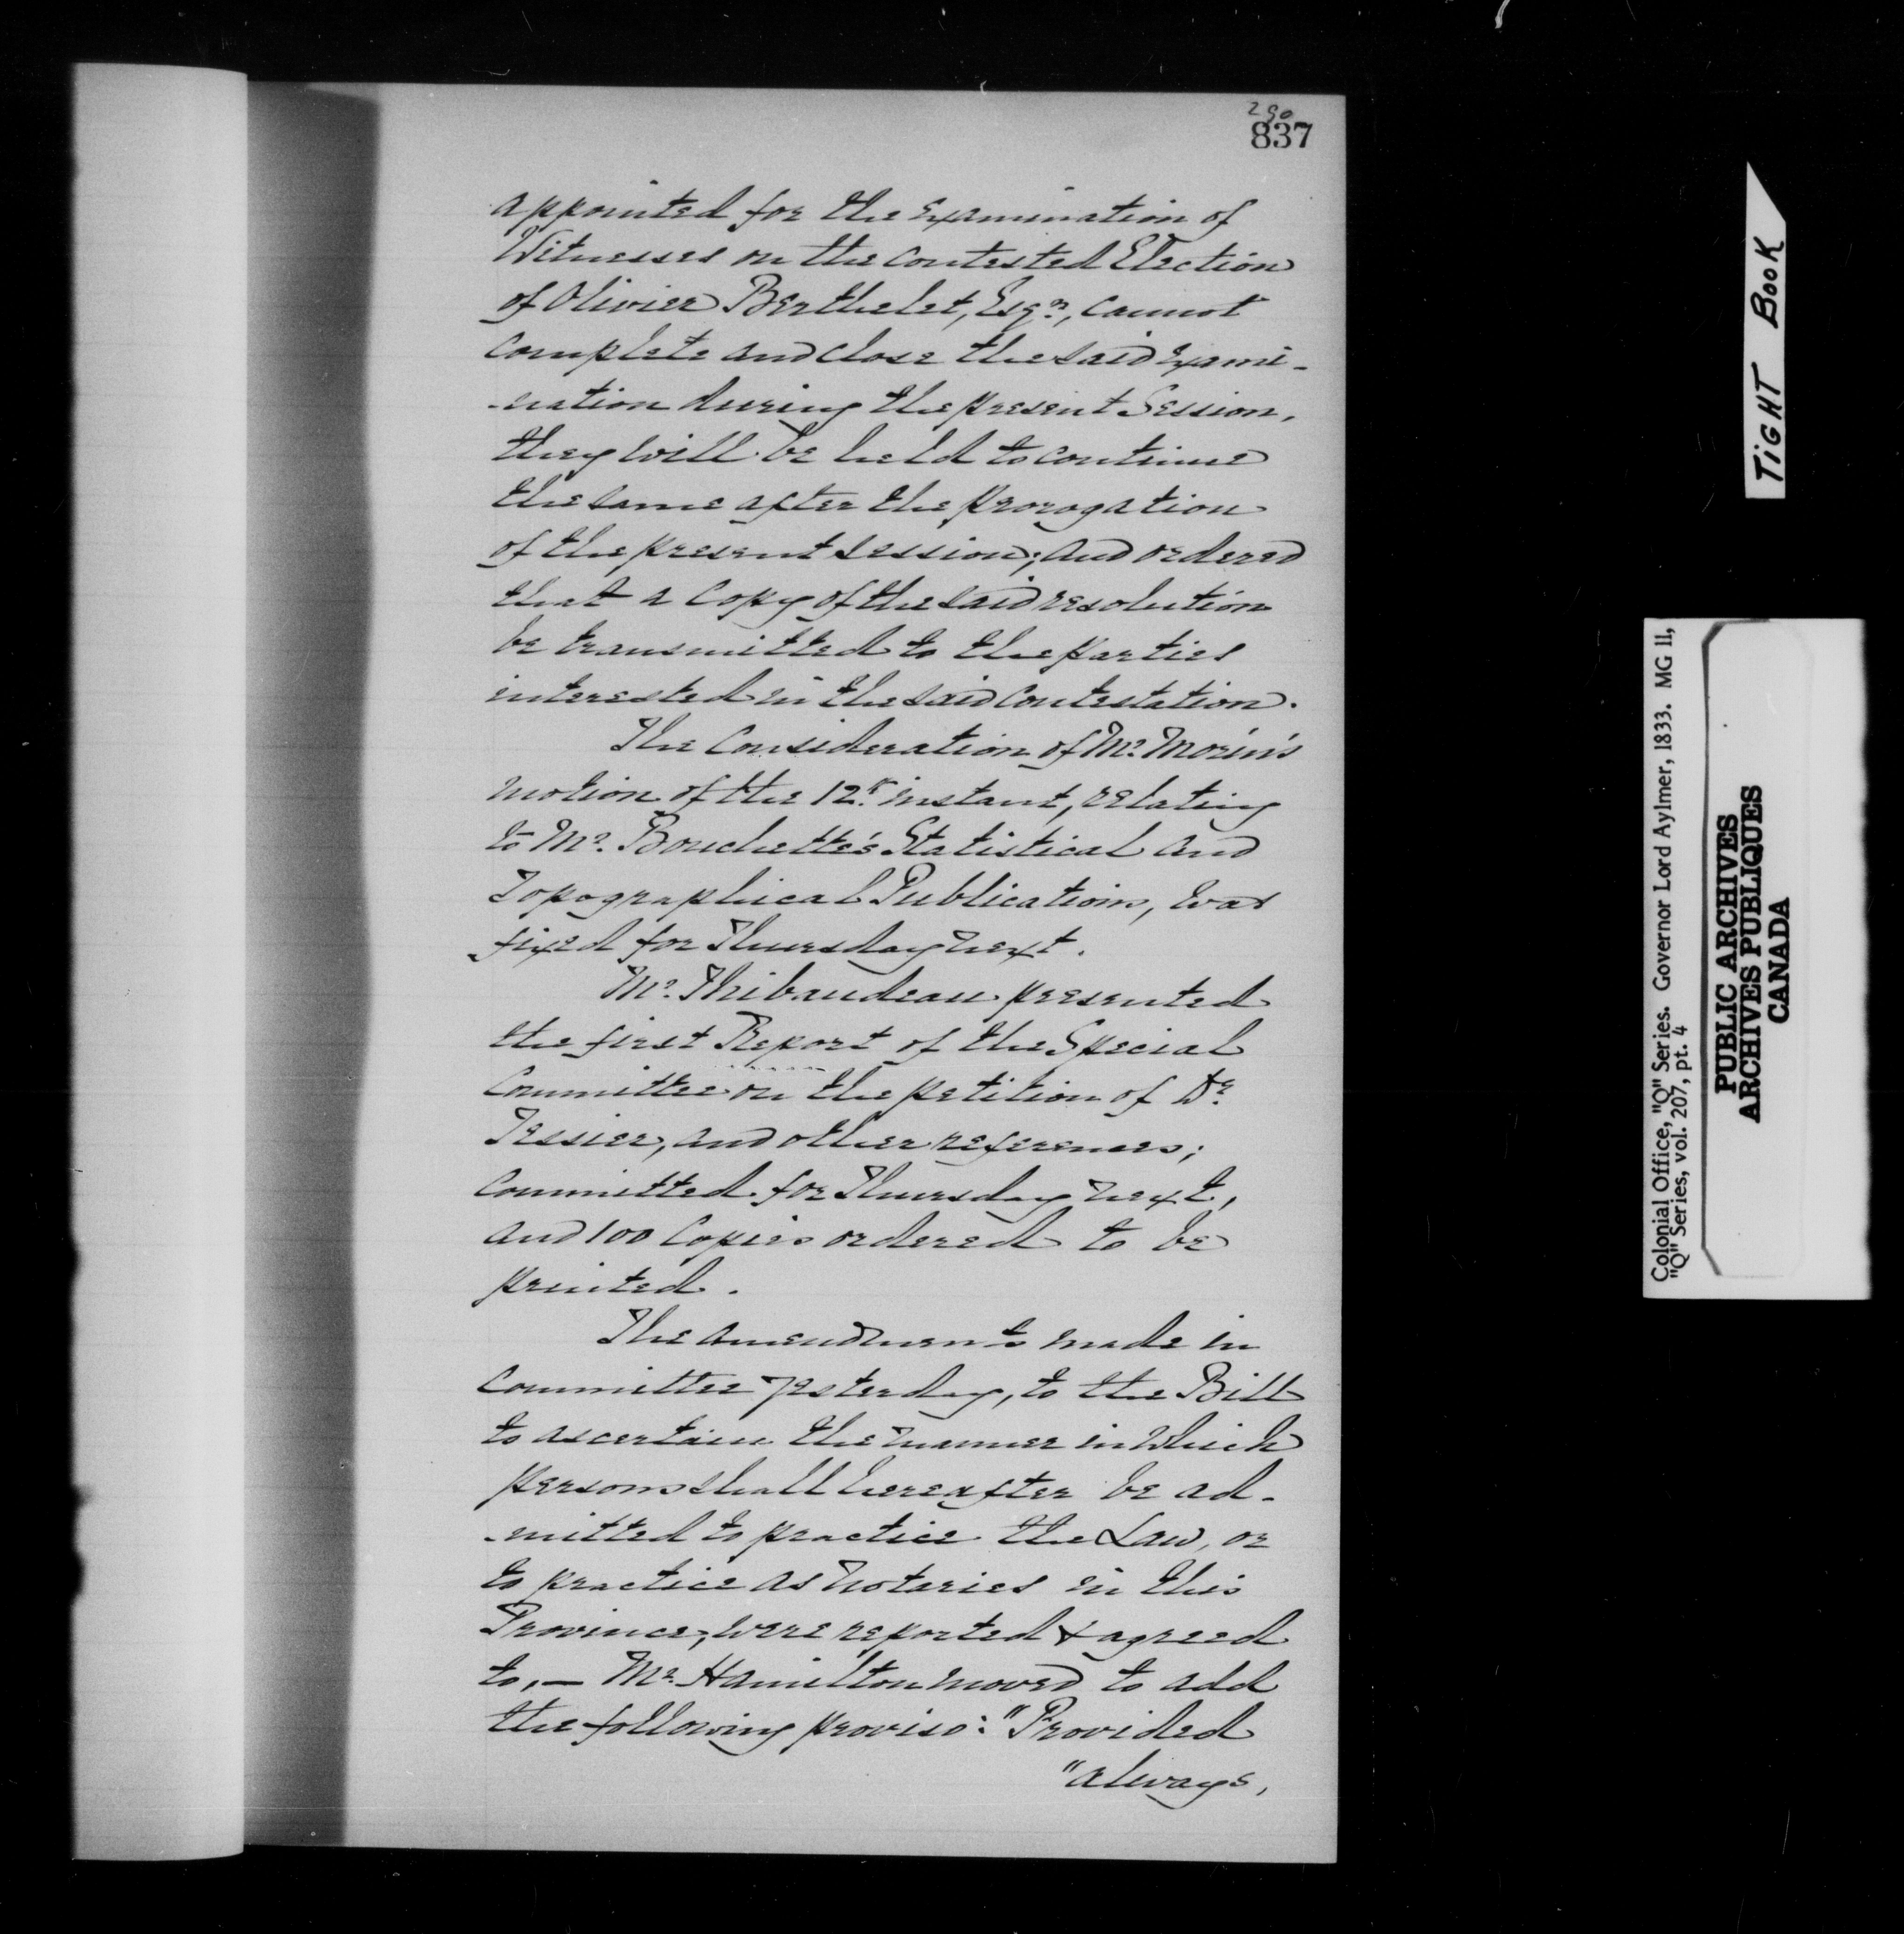 290
837
appointed for the examination of
Witnesses on the contested Election
of Olivier Berthelet, Esqr, cannot
complete and close the said exami-
-nation during the present Session,
they will be held to continue
the same after the prorogation
of the present session; and ordered
that a Copy of the said resolution
be transmitted to the parties
interested in the said contestation.
The Consideration of Mr. Morin's
motion of the 12th instant, relating
to Mr. Bouchette's Statistical and
Topographical Publications, was
fixed for Thursday next.
Mr. Thibaudeau presented
the first Report of the Special
Committee on the petition of Dr.
Tessier, and other references;
Committed for Thursday next,
and 100 Copies ordered to be
printed.
The amendments made in
Committee yesterday, to the Bill
to ascertain the manner in which
persons shall hereafter be ad-
-mitted to practice the Law, or
to practice as Notaries in this
Province, were reported & agreed
to,— Mr. Hamilton moved to add
the following proviso: "Provided
"always,
TIGHT BOOK
Colonial Office, "Q" Series. Governor Lord Aylmer, 1833. MG 11,
"Q" Series, vol. 207, pt. 4
PUBLIC ARCHIVES
ARCHIVES PUBLIQUES
CANADA